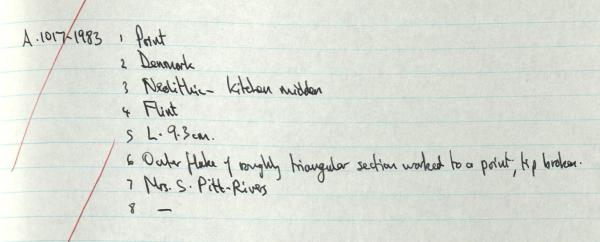 A.1017-1983 1 Point
2 Denmark
3 Neolithic - kitchen midden
4 Flint
5 L. 9.3cm.
6 Outer flake of roughly triangular section worked to a point, tip broken.
7 Mrs. S. Pitt-Rivers
8 —